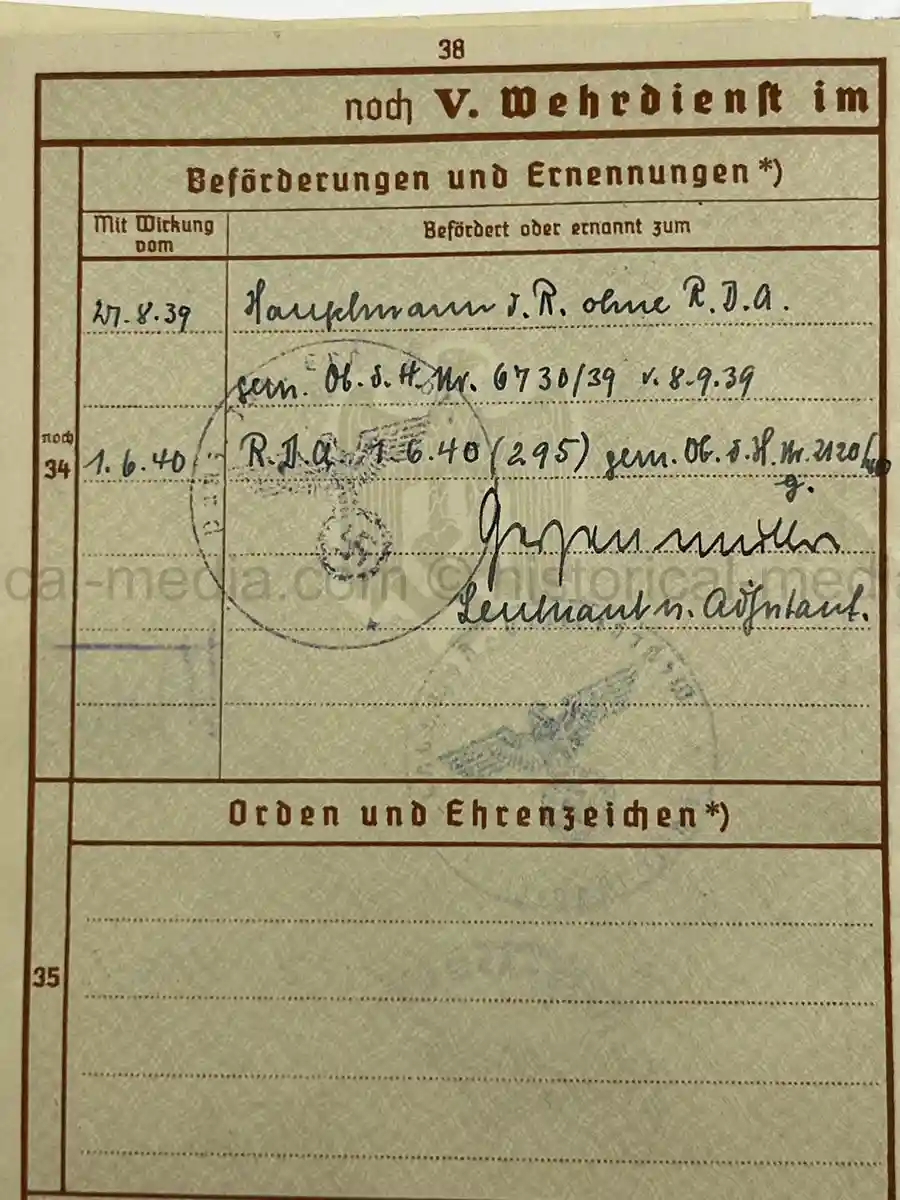 38
noch V. Wehrdienst im
Beförderungen und Ernennungen*)
Mit Wirkung vom
Befördert oder ernannt zum
27.8.39 Hauptmann d.R. ohne R.D.A.
gem. Ob.d.H. Nr. 6730/39 v. 8.9.39
noch 34
1.6.40 R.D.A. 1.6.40 (295) gem. Ob.d.H. Nr. 2120/40
g.
Leutnant u. Adjutant.
cal-media.com © historical-media
Orden und Ehrenzeichen*)
35